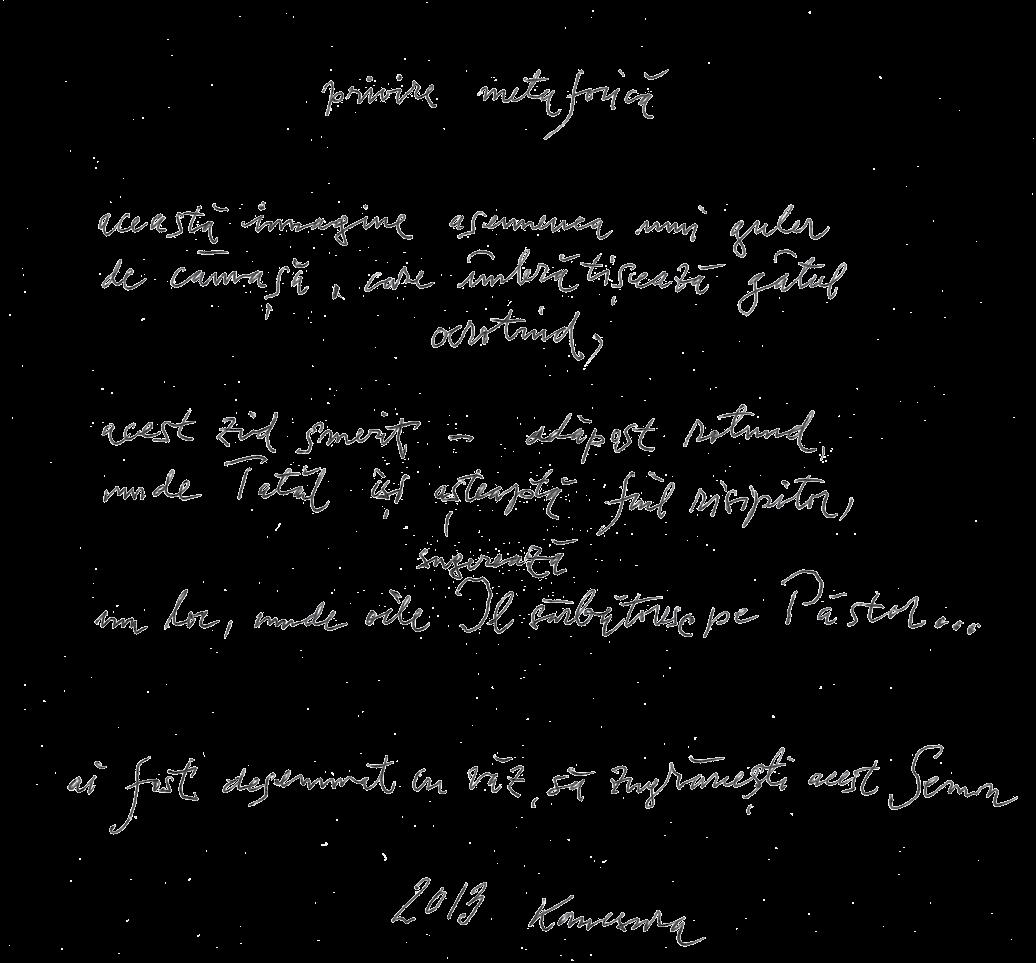 privire metaforică
această immagine asemenea unui guler
de cămașă, care îmbrățișează gâtul
ocrotind,
acest zid smerit - adăpost rotund,
unde Tatăl își așteaptă fiul risipitor,
sugerează
un loc, unde oile Îl sărbătoresc pe Păstor...
ai fost desemnat cu văz, să zugrăvești acest Semn
2013